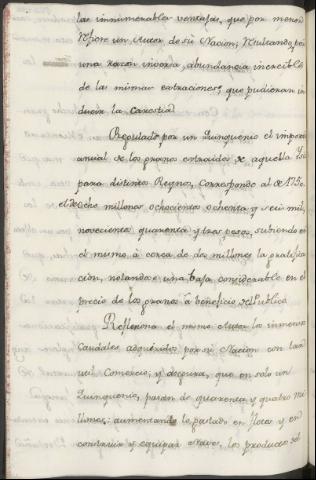 las innumerables ventajas, que por menor
refiere un Autor de su Nacion; resultando, por
una razon inversa, abundancia increible
de las mismas extracciones, que pudieran in
ducir la carestia.
Regulado por un Quinquenio el importe
anual de los granos extraidos de aquella
para distintos Reynos, correspondió al de 175
el de ocho millones ochocientos ochenta y seis mil,
novecientos quarenta y tres pesos, subiendo en
el mismo à cerca de dos millones la gratifica
cion, notandose una baja considerable en el
precio de los granos à beneficio del Publico.
Reflexiona el mismo Autor los inmensos
caudales adquiridos por su Nacion con tan
util Comercio; y asegura, que en solo un
Quinquenio, pasan de quarenta y quatro mi
llones: aumentando lo gastado en fletes y en
construir y equipar Naves, los productos del